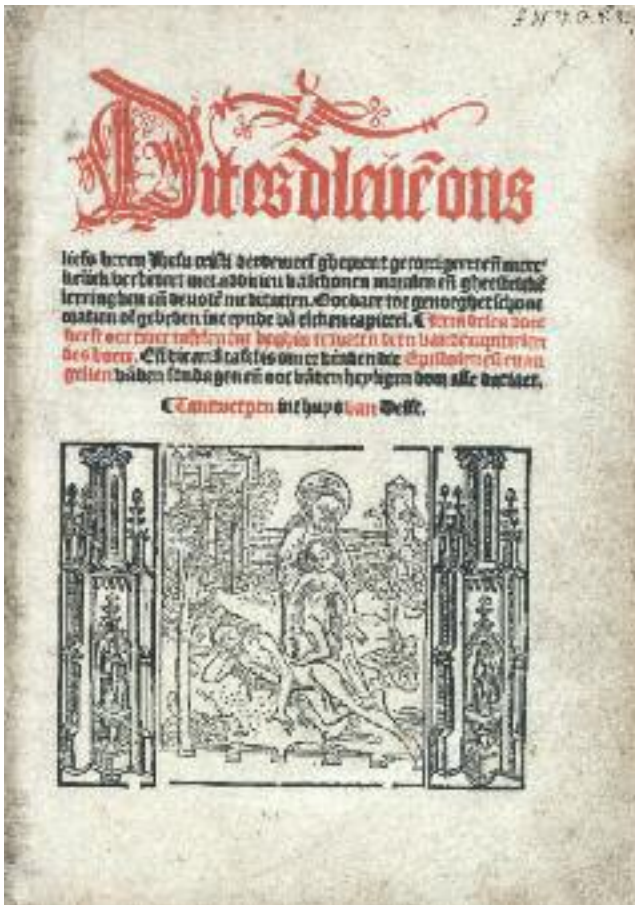 Dit es dleuē ons
liefs heren Jhesu cristi derdewerf gheprent gecorrigeert eñ merc
kelick verbetert met addicien vā schonen moralen eñ gheestelicke
leeringhen eñ deuotē meditacien. Ooc daer toe genoechet schone
oratien oft gebeden int eynde vā elcken capittel. ¶ Item drien
eerst ooc twee tafelen int beghin
des boecs. Eñ die ander tafel is om te vinden die Epistolen eñ euan
gelien vāden sondagen eñ ooc vāden heyligen door alle
¶ Tantwerpen int huys van Delft.